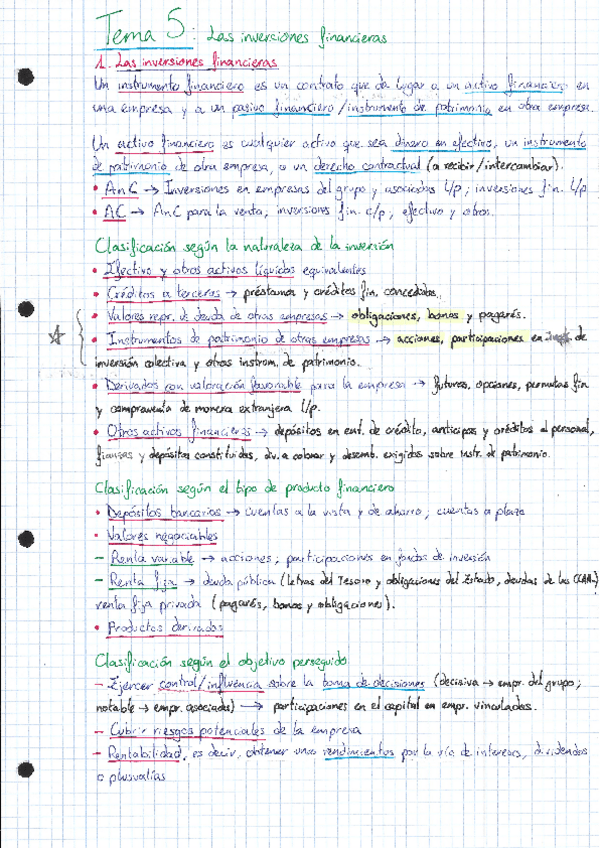 Tema 5: Las inversiones financieras
1. Las inversiones financieras
Un instrumento financiero es un contrato que da lugar a un activo financiero en
una empresa y a un pasivo financiero / instrumento de patrimonio en otra empresa.
Un activo financiero es cualquier activo que sea dinero en efectivo, un instrumento
de patrimonio de otra empresa, o un derecho contractual (a recibir/intercambiar).
• AnC → Inversiones en empresas del grupo y asociadas L/p; inversiones fin. L/p
• AC → AnC para la venta; inversiones fin. c/p; efectivo y otros.
Clasificación según la naturaleza de la inversión
• Efectivo y otros activos líquidos equivalentes
• Créditos a terceros → préstamos y créditos fin. concedidos.
• Valores repr. de deuda de otras empresas → obligaciones, bonos y pagarés.
• Instrumentos de patrimonio de otras empresas → acciones, participaciones en de
inversión colectiva y otros instrum. de patrimonio.
• Derivados con valoración favorable para la empresa → futuros, opciones, permutas fin
y compraventa de moneda extranjera l/p.
• Otros activos financieros → depósitos en ent. de crédito, anticipos y créditos al personal,
fianzas y depósitos constituidos, div. a cobrar y desemb. exigidos sobre instr. de patrimonio.
Clasificación según el tipo de producto financiero
• Depósitos bancarios → cuentas a la vista y de ahorro; cuentas a plazo
• Valores negociables
– Renta variable → acciones; participaciones en fondos de inversión
– Renta fija → deuda pública (Letras del Tesoro y obligaciones del Estado, deudas de las CCAA.)
renta fija privada (pagarés, bonos y obligaciones).
• Productos derivados
Clasificación según el objetivo perseguido
– Ejercer control/influencia sobre la toma de decisiones (decisiva → empr. del grupo;
notable → empr. asociada) → participaciones en el capital en empr. vinculadas.
– Cubrir riesgos potenciales de la empresa
– Rentabilidad, es decir, obtener unos rendimientos por la vía de intereses, dividendos
o plusvalías